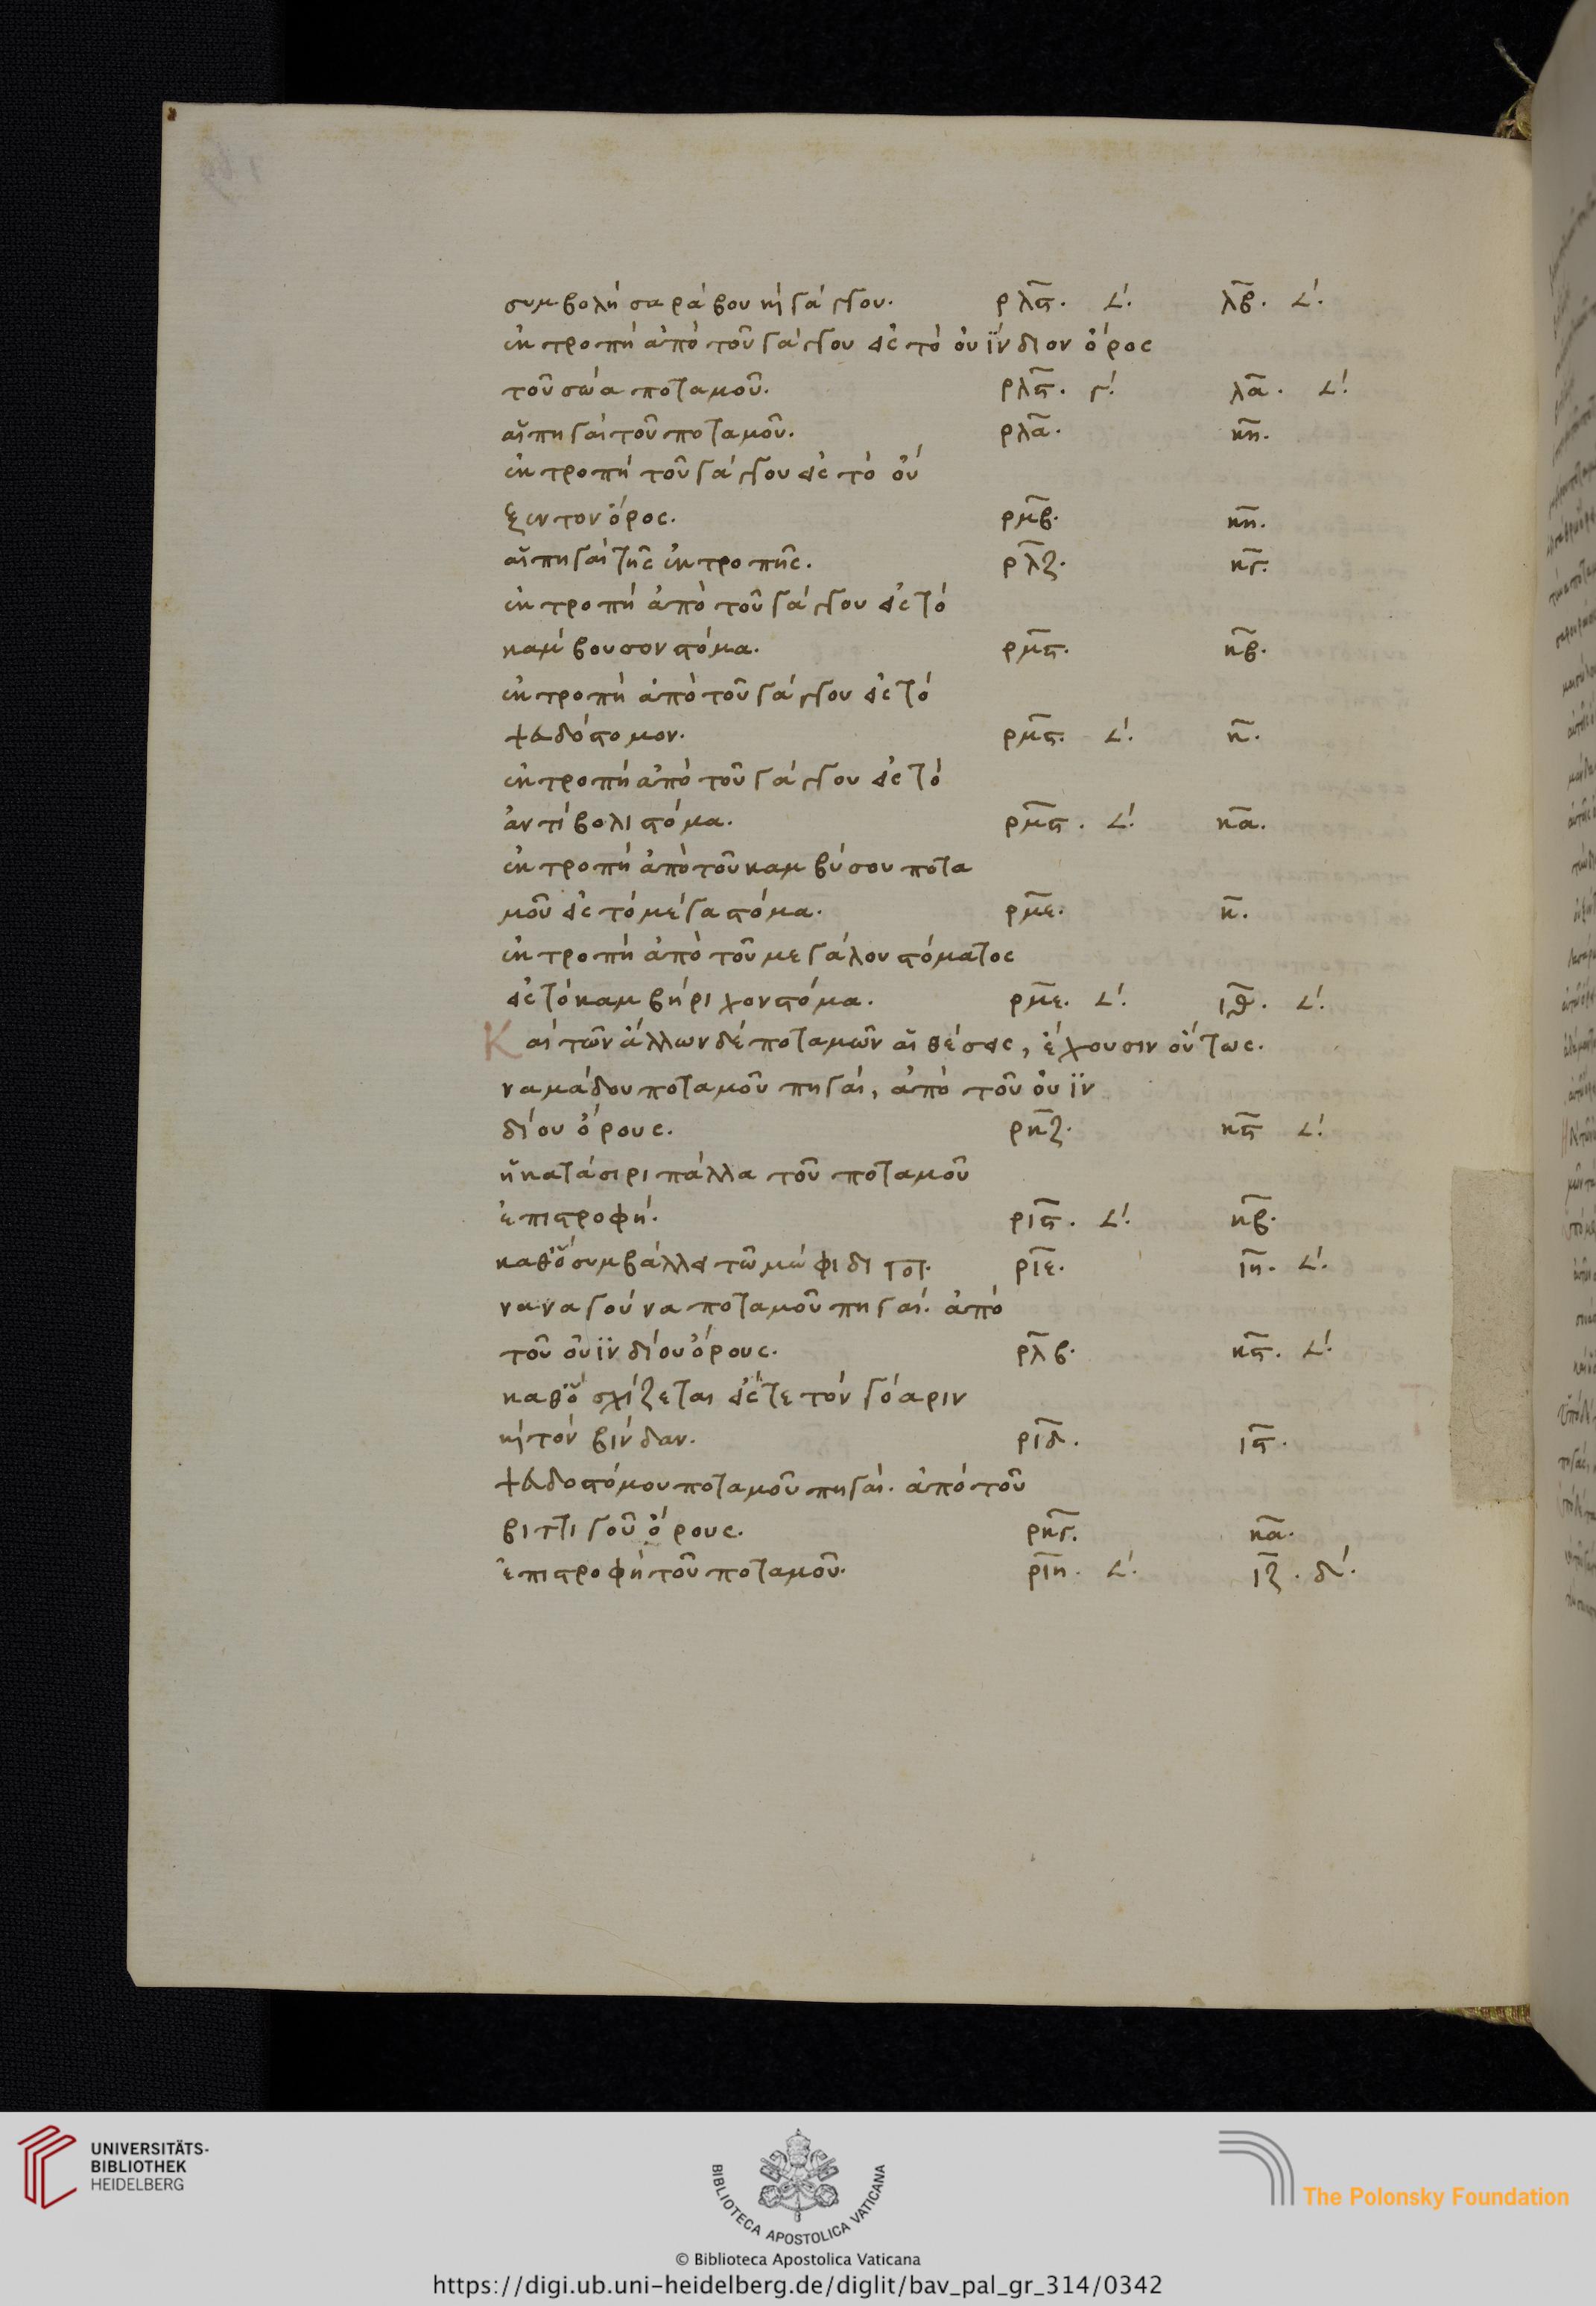 συμβολὴ σαράβου κὶ γάγγου. ρλς. 𐅵. λβ. 𐅵.
ἐκτροπὴ ἀπὸ τοῦ γάγγου εἰς τὸ οὐΐνδιον ὄρος
τοῦ σώα ποταμοῦ. ρλς. γ. λα. 𐅵.
αἱ πηγαὶ τοῦ ποταμοῦ. ρλα. κη.
ἐκτροπὴ τοῦ γάγγου εἰς τὸ οὐ
ξεντον ὄρος. ρμβ. κη.
αἱ πηγαὶ τῆς ἐκτροπῆς. ρλζ. κγ.
ἐκτροπὴ ἀπὸ τοῦ γάγγου εἰς τὸ
καμβουσον στόμα. ρμς. κβ.
ἐκτροπὴ ἀπὸ τοῦ γάγγου εἰς τὸ
ψευδόστομον. ρμς. 𐅵. κ.
ἐκτροπὴ ἀπὸ τοῦ γάγγου εἰς τὸ
ἀντίβολι στόμα. ρμς. 𐅵. κα.
ἐκτροπὴ ἀπὸ τοῦ καμβύσου ποτα
μοῦ εἰς τὸ μέγα στόμα. ρμε. κ.
ἐκτροπὴ ἀπὸ τοῦ μεγάλου στόματος
εἰς τὸ καμβήριχον στόμα. ρμε. 𐅵. ιθ. 𐅵.
Καὶ τῶν ἄλλων δὲ ποταμῶν αἱ θέσεις, ἔχουσιν οὕτως.
ναμάδου ποταμοῦ πηγαὶ, ἀπὸ τοῦ οὐϊν
δίου ὄρους. ρκζ. κς 𐅵.
ἡ κατὰ σιριπάλλα τοῦ ποταμοῦ
ἐπιστροφή. ρις. 𐅵. κβ.
καθ' ὃ συμβάλλει τῶ μώφιδι ποτ. ριε. ιη. 𐅵.
ναναγούνα ποταμοῦ πηγαί. ἀπὸ
τοῦ οὐϊνδίου ὄρους. ρλβ. κς. 𐅵.
καθ' ὃ σχίζεται εἴς τε τὸν γόαριν
κὶ τὸν βίνδαν. ριδ. ις.
ψευδοστόμου ποταμοῦ πηγαί. ἀπὸ τοῦ
βιττιγοῦ ὄρους. ρκγ. κα.
ἐπιστροφὴ τοῦ ποταμοῦ. ριη. 𐅵. ιζ. δ.
UNIVERSITÄTS-
BIBLIOTHEK
HEIDELBERG
BIBLIOTECA APOSTOLICA VATICANA
The Polonsky Foundation
© Biblioteca Apostolica Vaticana
https://digi.ub.uni-heidelberg.de/diglit/bav_pal_gr_314/0342